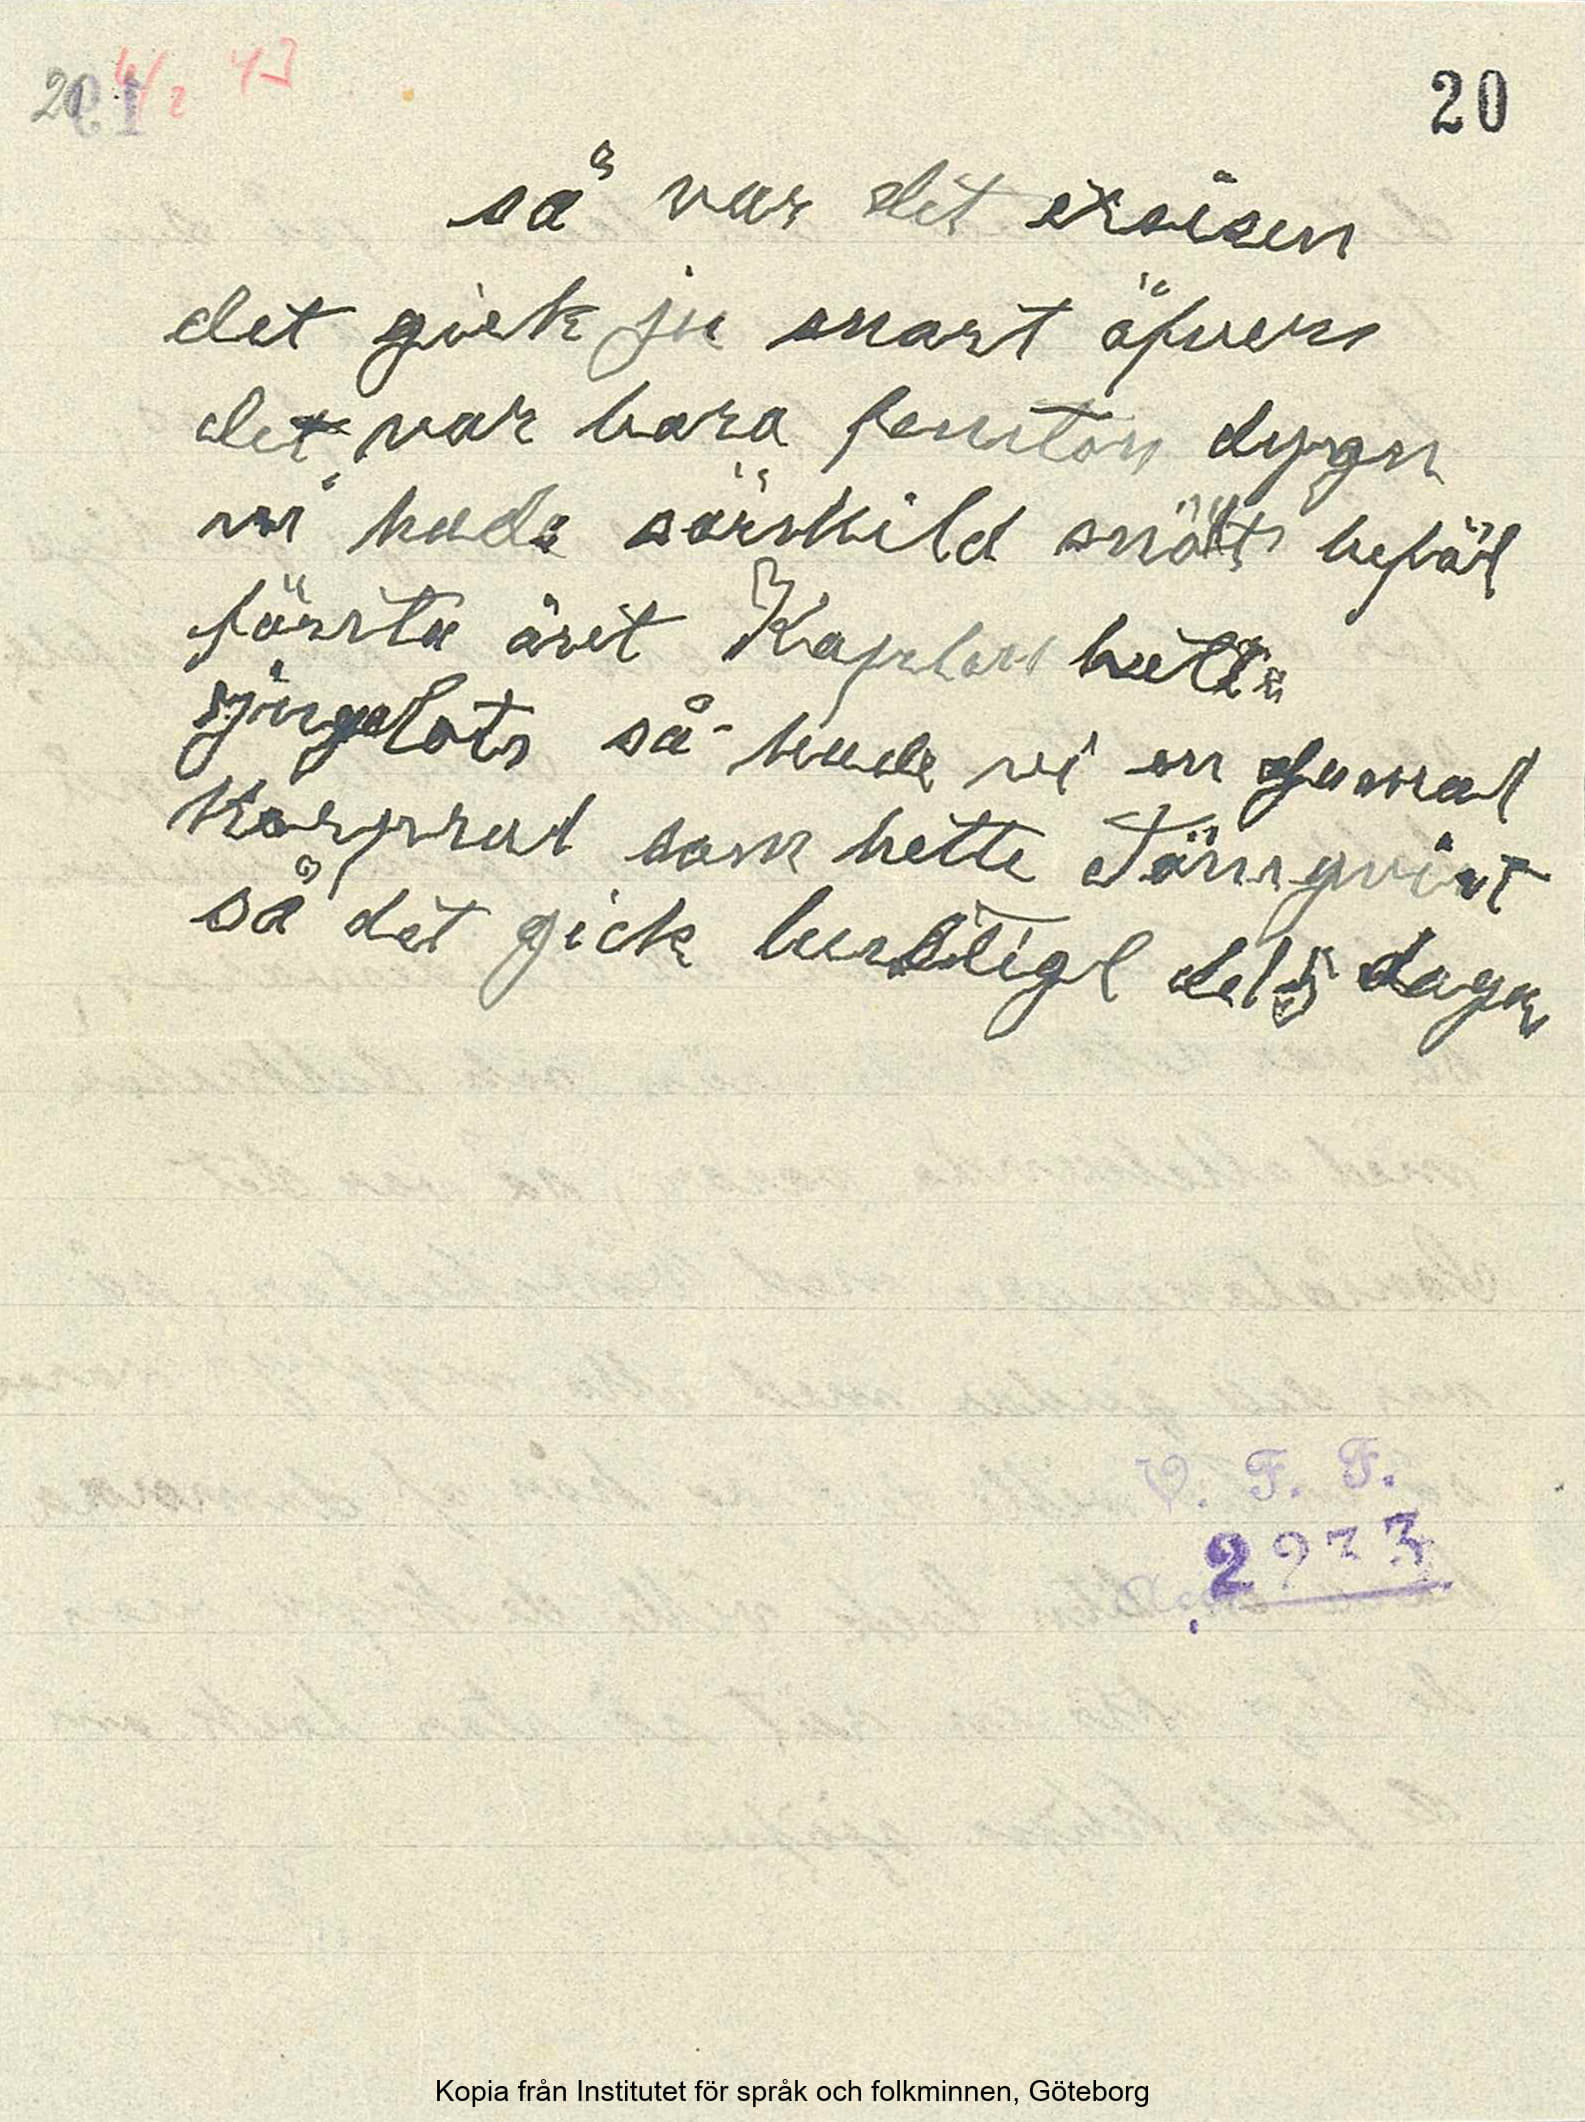 20 4/2 43
20
så var det exsisen
det gick ju snart öfver
det var bara femton dygn
vi hade särskild snält befäl
första året Kapten hette
så hade vi en gamal
Korpral som hette Törnqvist
så det gick lustigt dels dagar
V. F. F.
2933
Kopia från Institutet för språk och folkminnen, Göteborg